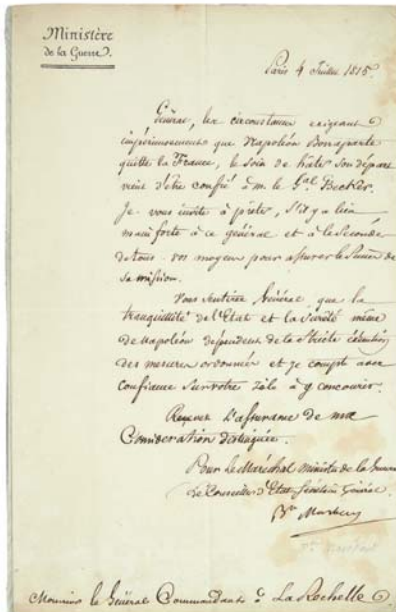 Ministère
de la Guerre.
Paris 4 Juillet 1815.
Général, les circonstances exigeant
impérieusement que Napoléon Bonaparte
quitte la France, le soin de hâter son départ
vient d'être confié à M. le Gal Becker.
Je vous invite à prêter, s'il y a lieu
main forte à ce général et à le seconder
de tous vos moyens pour assurer le succès de
sa mission.
Vous sentirez Général que la
tranquillité de l'Etat et la sûreté même
de Napoléon dépendent de la stricte exécution
des mesures ordonnées et je compte avec
confiance sur votre zèle à y concourir.
Recevez l'assurance de ma
Considération distinguée.
Pour le Maréchal ministre de la Guerre
Le Conseiller d'Etat Secrétaire Général
Bon
Monsieur le Général Commandant à La Rochelle